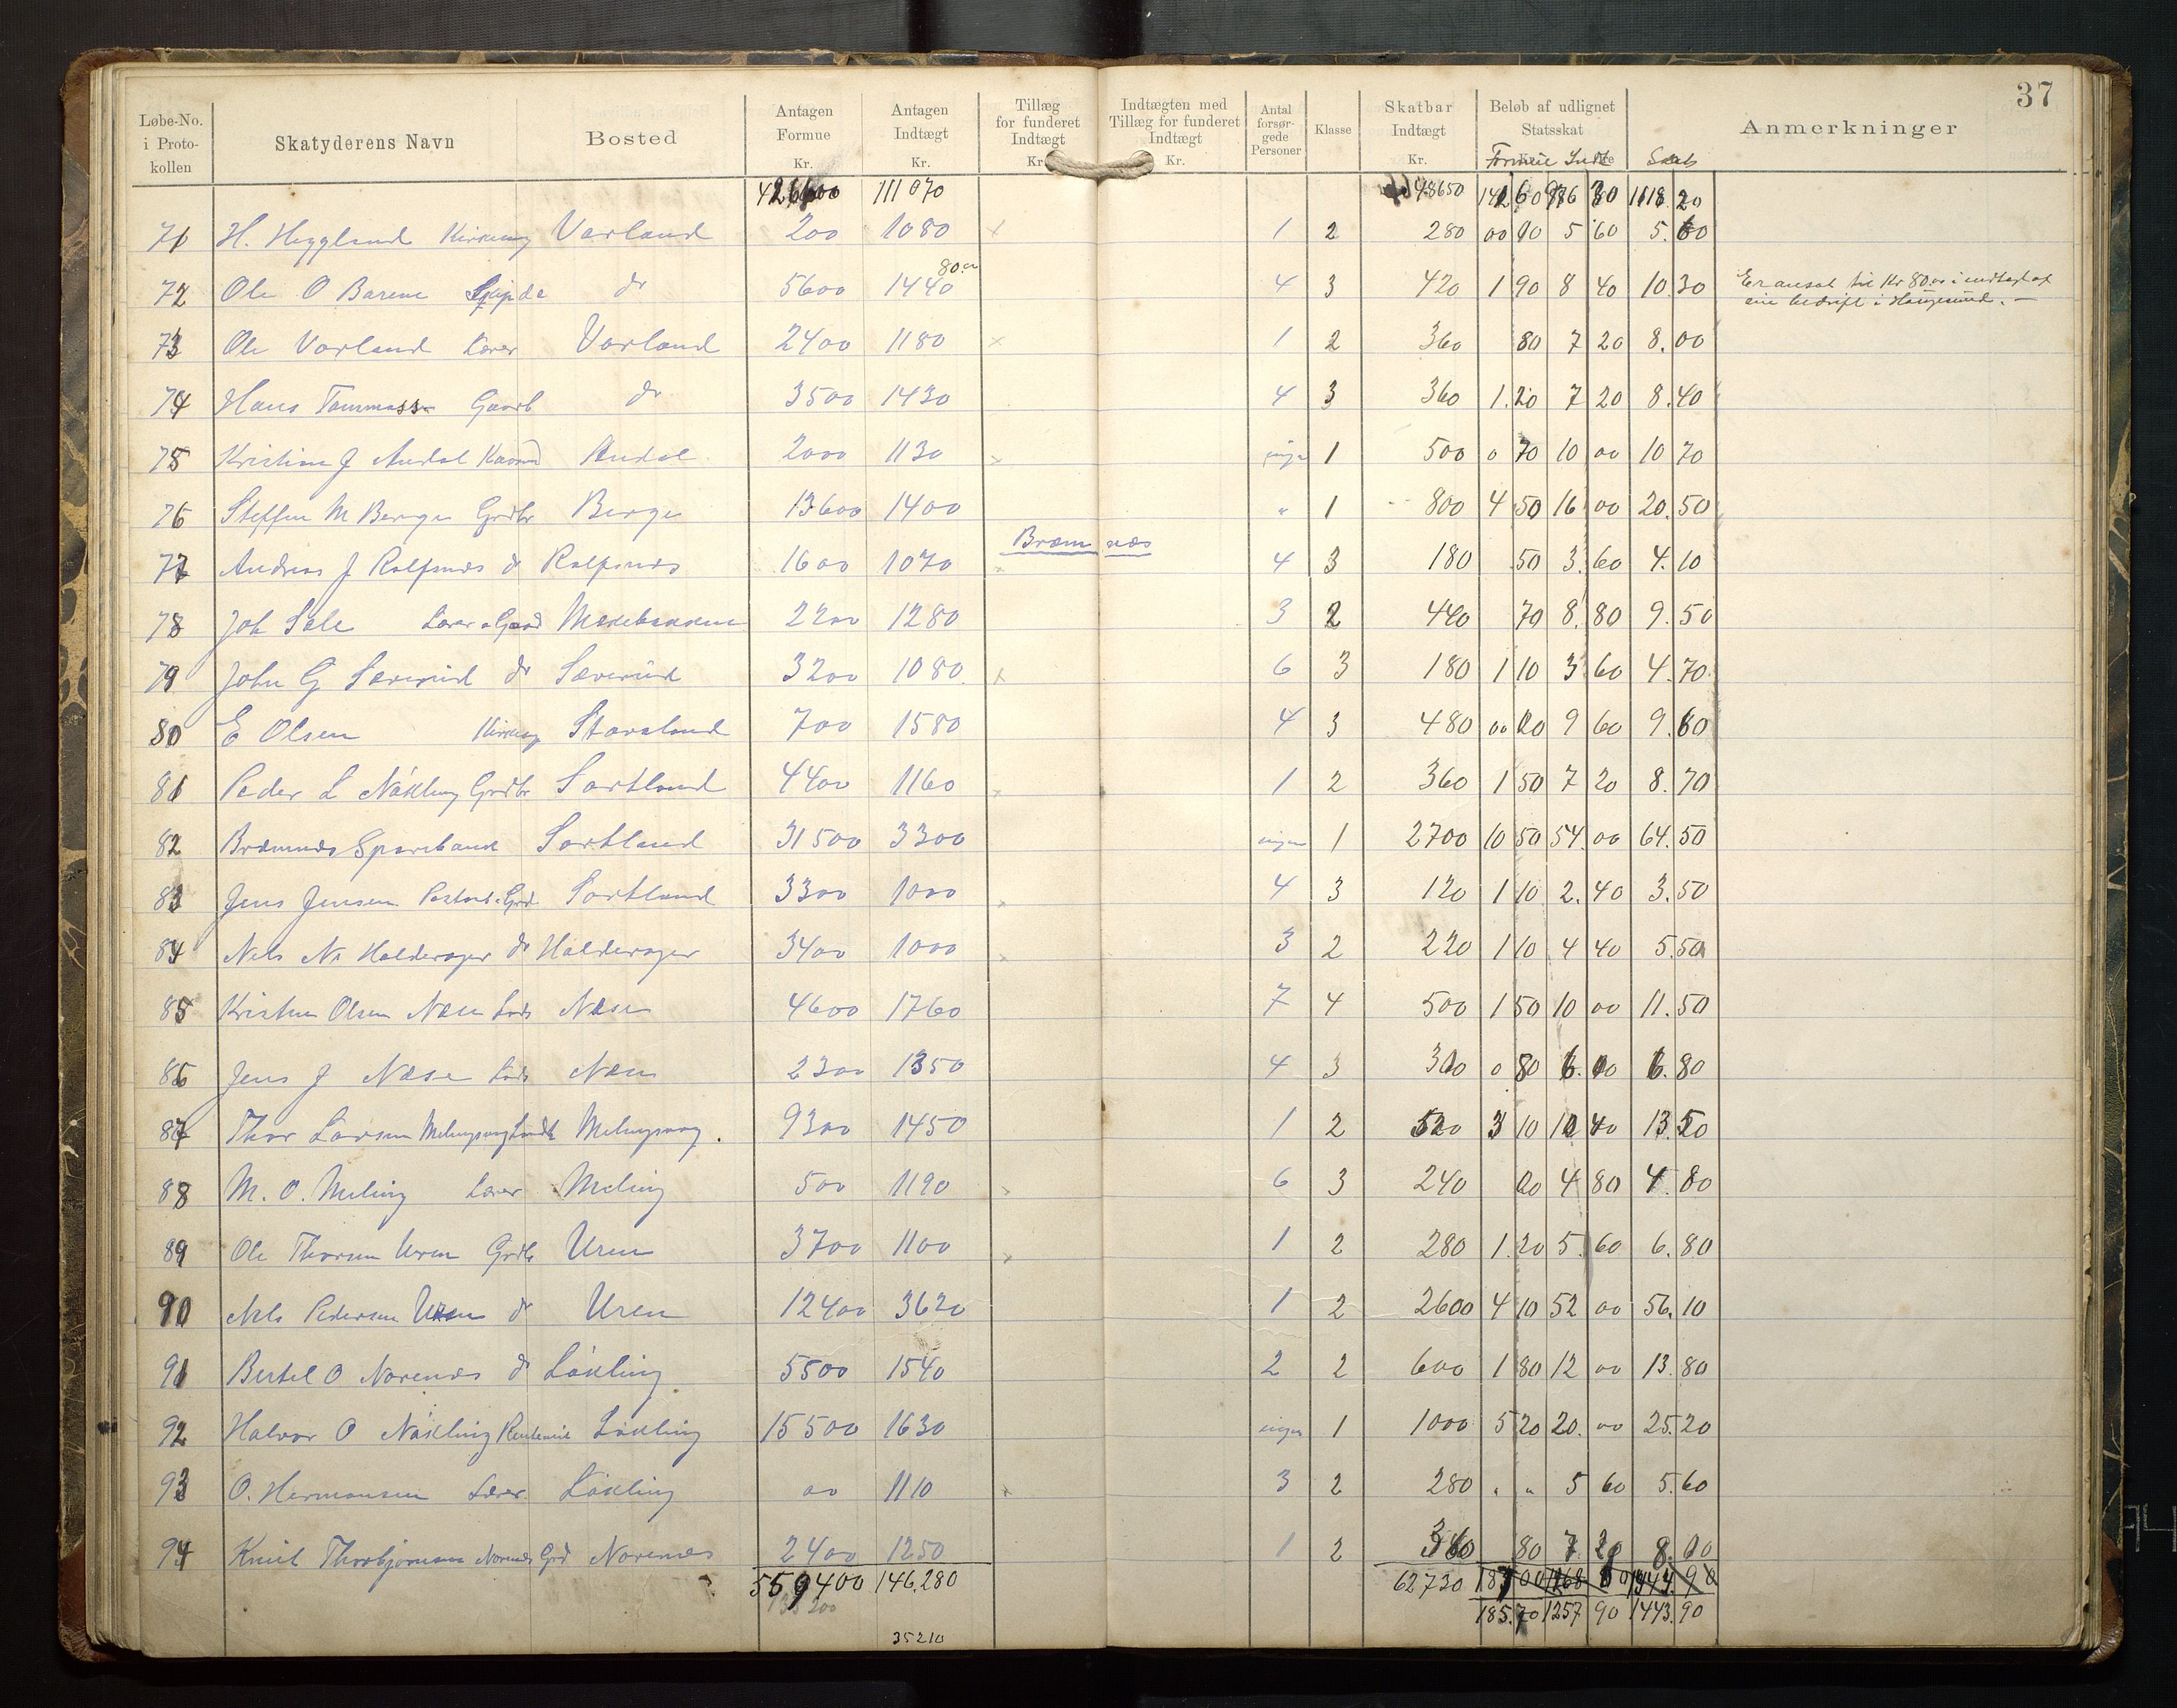 37
Løbe-No. i Proto-kollen | Skatyderens Navn | Bosted | Antagen Formue Kr. | Antagen Indtægt Kr. | Tillæg for funderet Indtægt Kr. | Indtægten med Tillæg for funderet Indtægt Kr. | Antal forsør-gede Personer | Klasse | Skatbar Indtægt Kr. | Beløb af udlignet Statsskat Formue Indt | Skat | Anmerkninger
426600 111070 48650 142 60 976 1118 20
71 H. Heggland Kirkesang Varland 200 1080 × 1 2 280 00 5 60 5.60
72 Ole O Barene do 5600 1440 80.00 4 3 420 1 90 8 40 10 30 Er ansat til Kr 80.00 i indtægt af
sin bedrift i Haugesund. —
73 Ole Varland Lærer Varland 2400 1180 × 1 2 360 80 7 20 8.00
74 Hans Gaardb do 3500 1430 4 3 360 1.20 7 20 8.40
75 Kristine J Audal Audal 2000 1130 × ingen 1 500 0 70 10 00 10 70
76 Steffen M Berge Grdbr Berge 13600 1400 " 1 800 4 50 16 00 20.50
Bræmnæs
77 Andreas J Rolfsnes do Rolfsnes 1600 1070 × 4 3 180 50 3.60 4.10
78 Joh Sele Lærer 2200 1280 3 2 440 70 8.80 9.50
79 John G Særvrind do Særvrind 3200 1080 × 6 3 180 1 10 3 60 4.70
80 E Olsen Kirkesang 700 1580 4 3 480 00 9 60 9.60
81 Peder L Nåkling Grdbr Sortland 4400 1160 × 1 2 360 1 50 7 20 8.70
82 Bræmnes Sparebank Sortland 31500 3300 ingen 1 2700 10 50 54.00 64.50
83 Jens Jensen Sortland 3300 1000 × 4 3 120 1 10 2.40 3.50
84 Nels Ns Halderager do Halderager 3400 1000 × 3 2 220 1 10 4 40 5.50
85 Kristen Olsen Næse Lods Næse 4600 1760 7 4 500 1 50 10 00 11.50
86 Jens J Næse Lods Næse 2300 1350 4 3 300 0 80 6.00 6.80
87 Thor Larsen Melingsvaag Melingsvaag 9300 1450 1 2 520 3 10 10 40 13.50
88 M. O. Meling Lærer Meling 500 1190 × 6 3 240 4 80 4.80
89 Ole Thorsen Uren Grdbr Uren 3700 1100 × 1 2 280 1.20 5.60 6.80
90 Nels Pedersen Uren do Uren 12400 3620 1 2 2600 4 10 52 00 56.10
91 Bertel O Norenæs do Låkling 5500 1540 2 2 600 1 80 12 00 13.80
92 Halvor O Nåkling Låkling 15500 1630 ingen 1 1000 5 20 20.00 25.20
93 O. Hermansen Lærer Låkling 00 1110 × 3 2 280 " " 5 60 5.60
94 Knut Thorbjørnsen Norenæs Grd Norenæs 2400 1250 1 2 360 80 7.20 8.00
559400 146,280 62730
185.70 1257 90 1443.90
35210